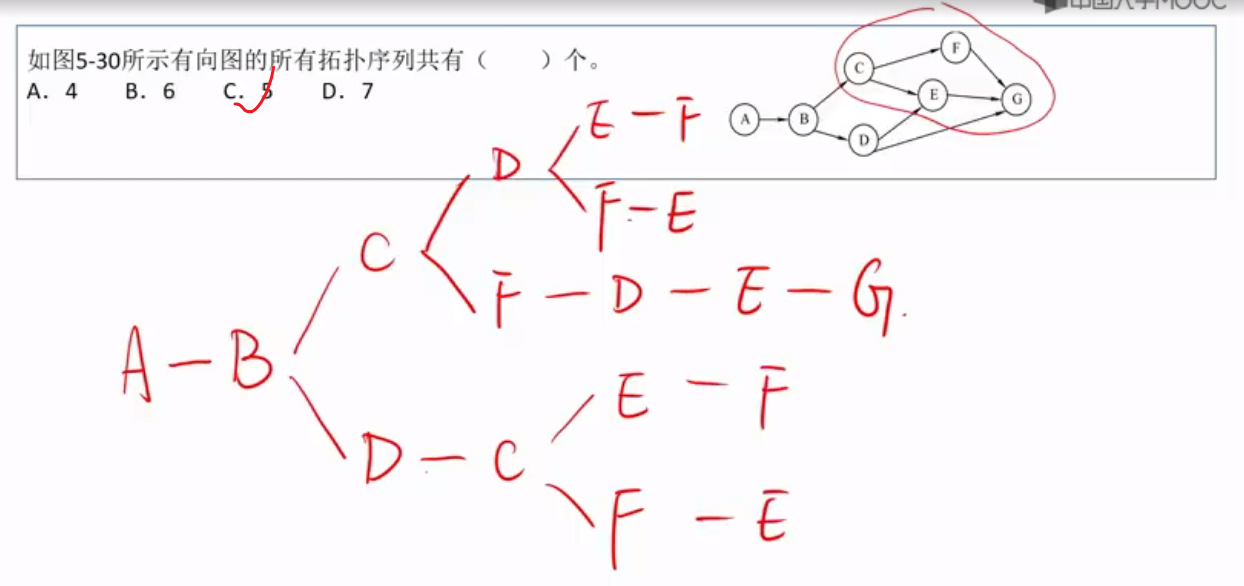 中国大学MOOC
如图5-30所示有向图的所有拓扑序列共有（ ）个。
A. 4 B. 6 C. 5 D. 7
F
C
E
G
A
B
D
E - F
D
F - E
C
F - D - E - G.
A - B
E - F
D - C
F - E